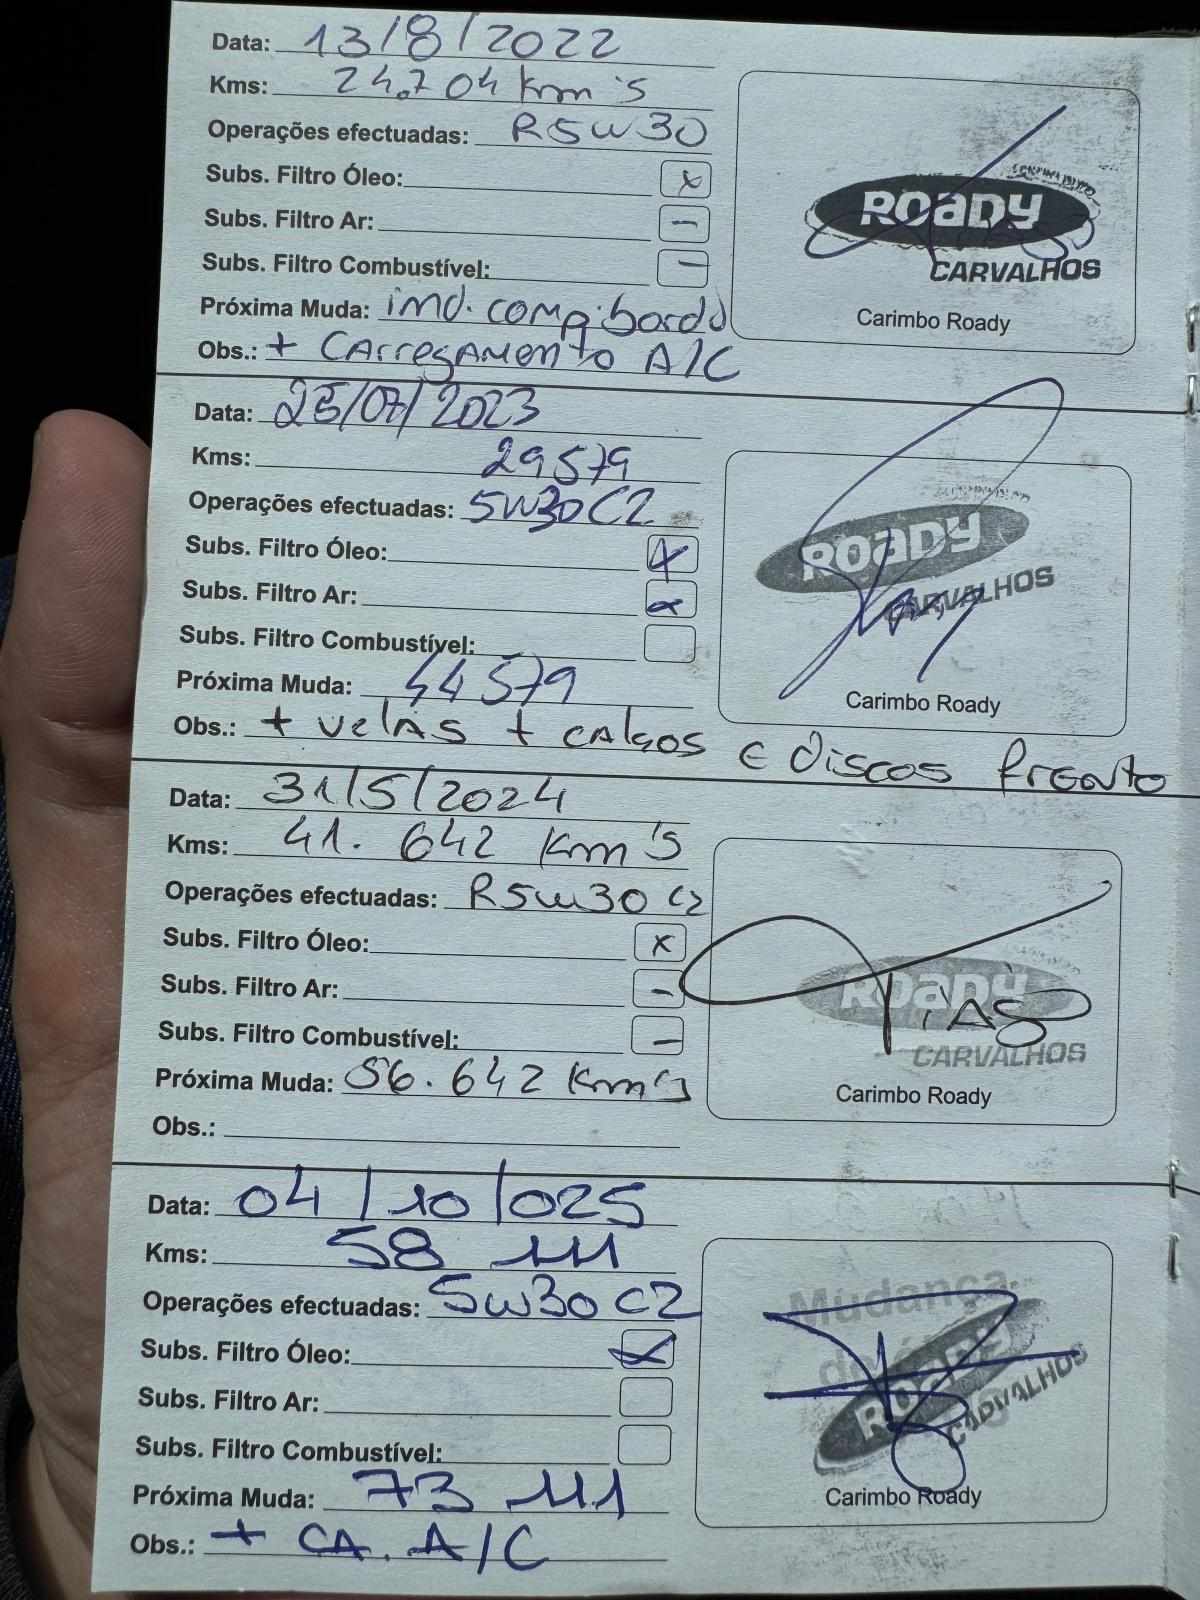 Data: 13/8/2022
Kms: 24.704 Km's
Operações efectuadas: R5W30
Subs. Filtro Óleo: x
Subs. Filtro Ar: -
Subs. Filtro Combustível: -
Próxima Muda: imd. comp. bordo
Obs.: + CArregAmento A/C
ROADY
CARVALHOS
Carimbo Roady
Data: 25/07/2023
Kms: 29579
Operações efectuadas: 5W30 C2
Subs. Filtro Óleo: x
Subs. Filtro Ar: x
Subs. Filtro Combustível:
Próxima Muda: 44579
Obs.: + velAs + cAlços e discos frente
ROADY
CARVALHOS
Carimbo Roady
Data: 31/5/2024
Kms: 41.642 Km's
Operações efectuadas: R5w30 C2
Subs. Filtro Óleo: x
Subs. Filtro Ar: -
Subs. Filtro Combustível: -
Próxima Muda: 56.642 Km's
Obs.:
ROADY
TiAgo
CARVALHOS
Carimbo Roady
Data: 04/10/025
Kms: 58 111
Operações efectuadas: 5w30 C2
Subs. Filtro Óleo: x
Subs. Filtro Ar:
Subs. Filtro Combustível:
Próxima Muda: 73 111
Obs.: + CA. A/C
Mudança
ROADY
CARVALHOS
Carimbo Roady